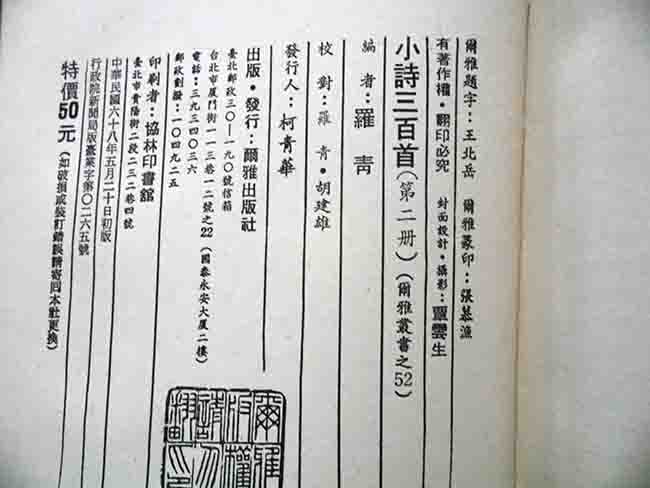 爾雅題字：王北岳　爾雅篆印：張慕漁
有著作權•翻印必究　封面設計•攝影：覃雲生
小詩三百首（第二册）（爾雅叢書之52）
編者：羅青
校對：羅青•胡建雄
發行人：柯青華
出版•發行：爾雅出版社
臺北郵政三〇—一九〇號信箱
台北市廈門街一一三巷一二號之22（國泰永安大厦二樓）
電話：三九三四〇三六
郵政劃撥：一〇四九二五
印刷者：協林印書館
臺北市貴陽街二段二三二巷四號
中華民國六十八年五月二十日初版
行政院新聞局版臺業字第〇二六五號
特價50元（如破損或裝訂錯誤請寄回本社更換）
爾雅
版權
請勿
翻印